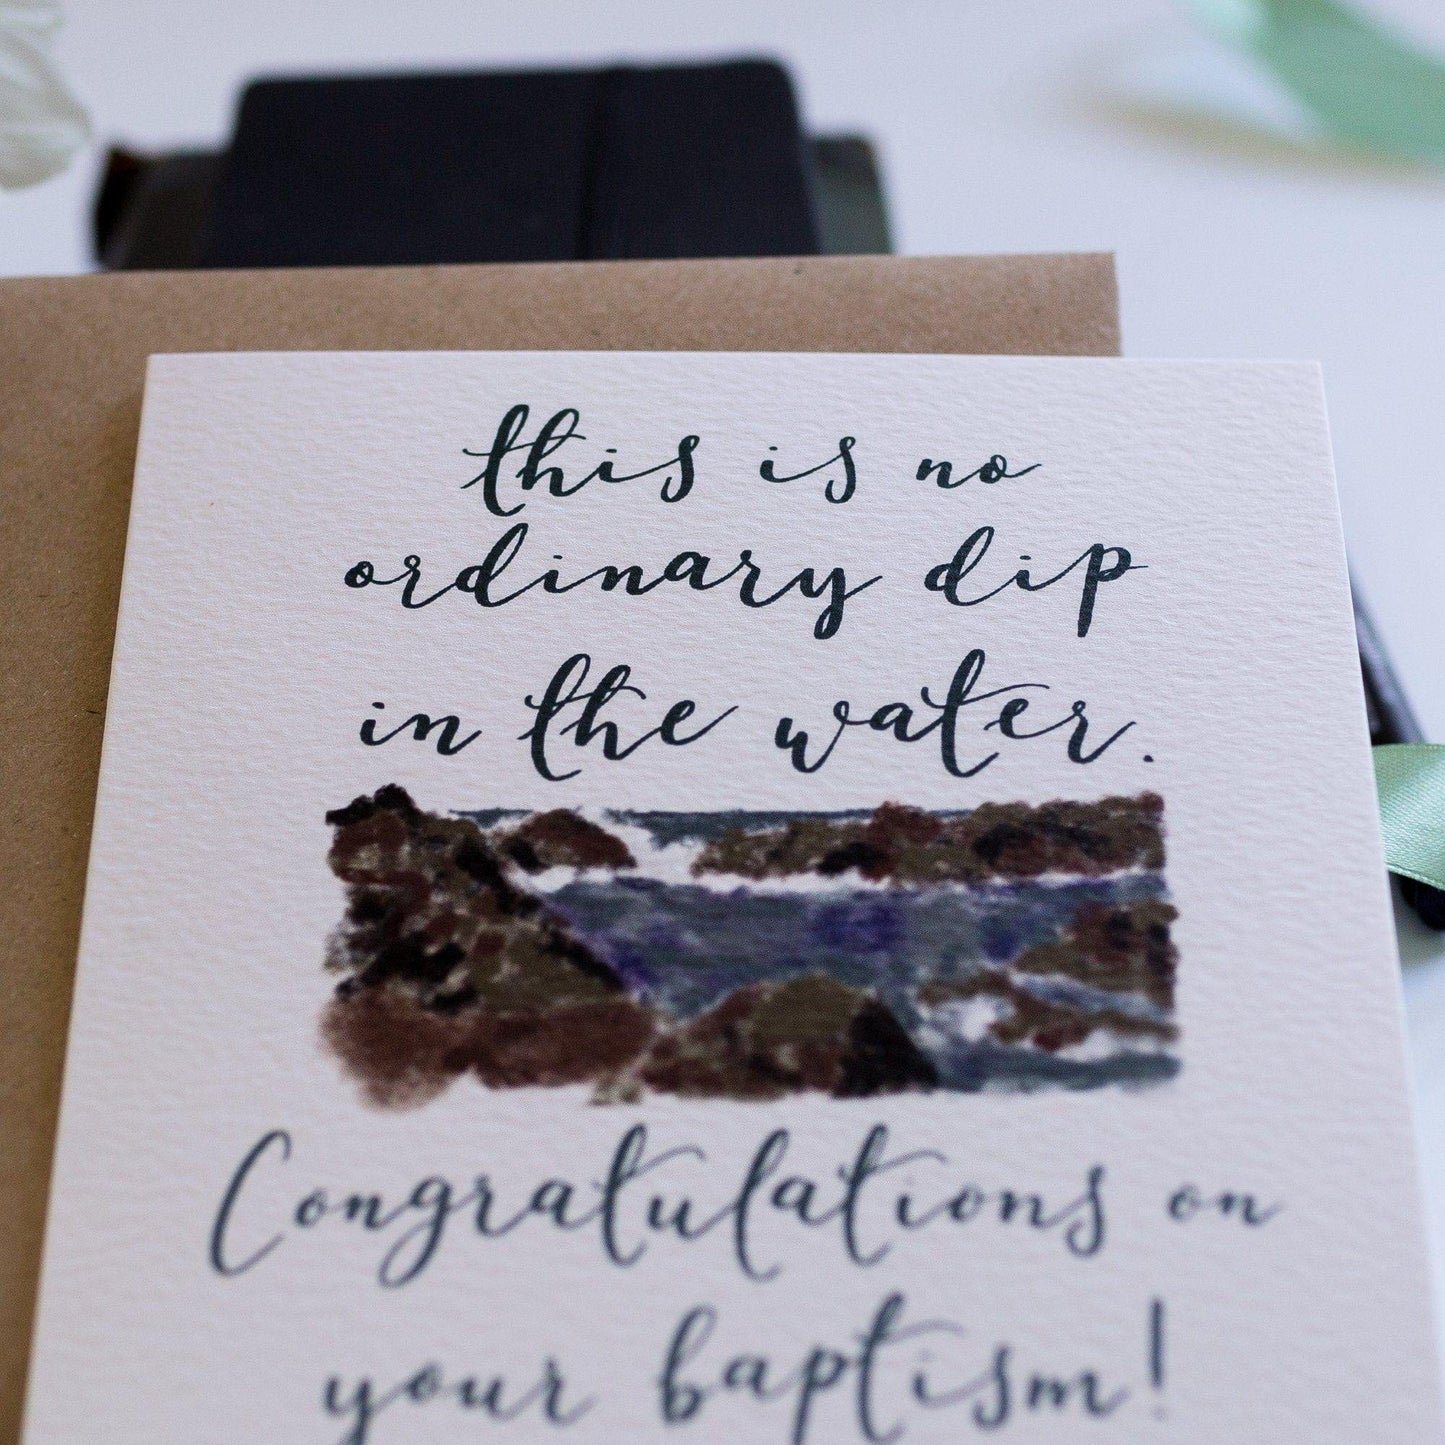 this is no
ordinary dip
in the water.
Congratulations on
your baptism!